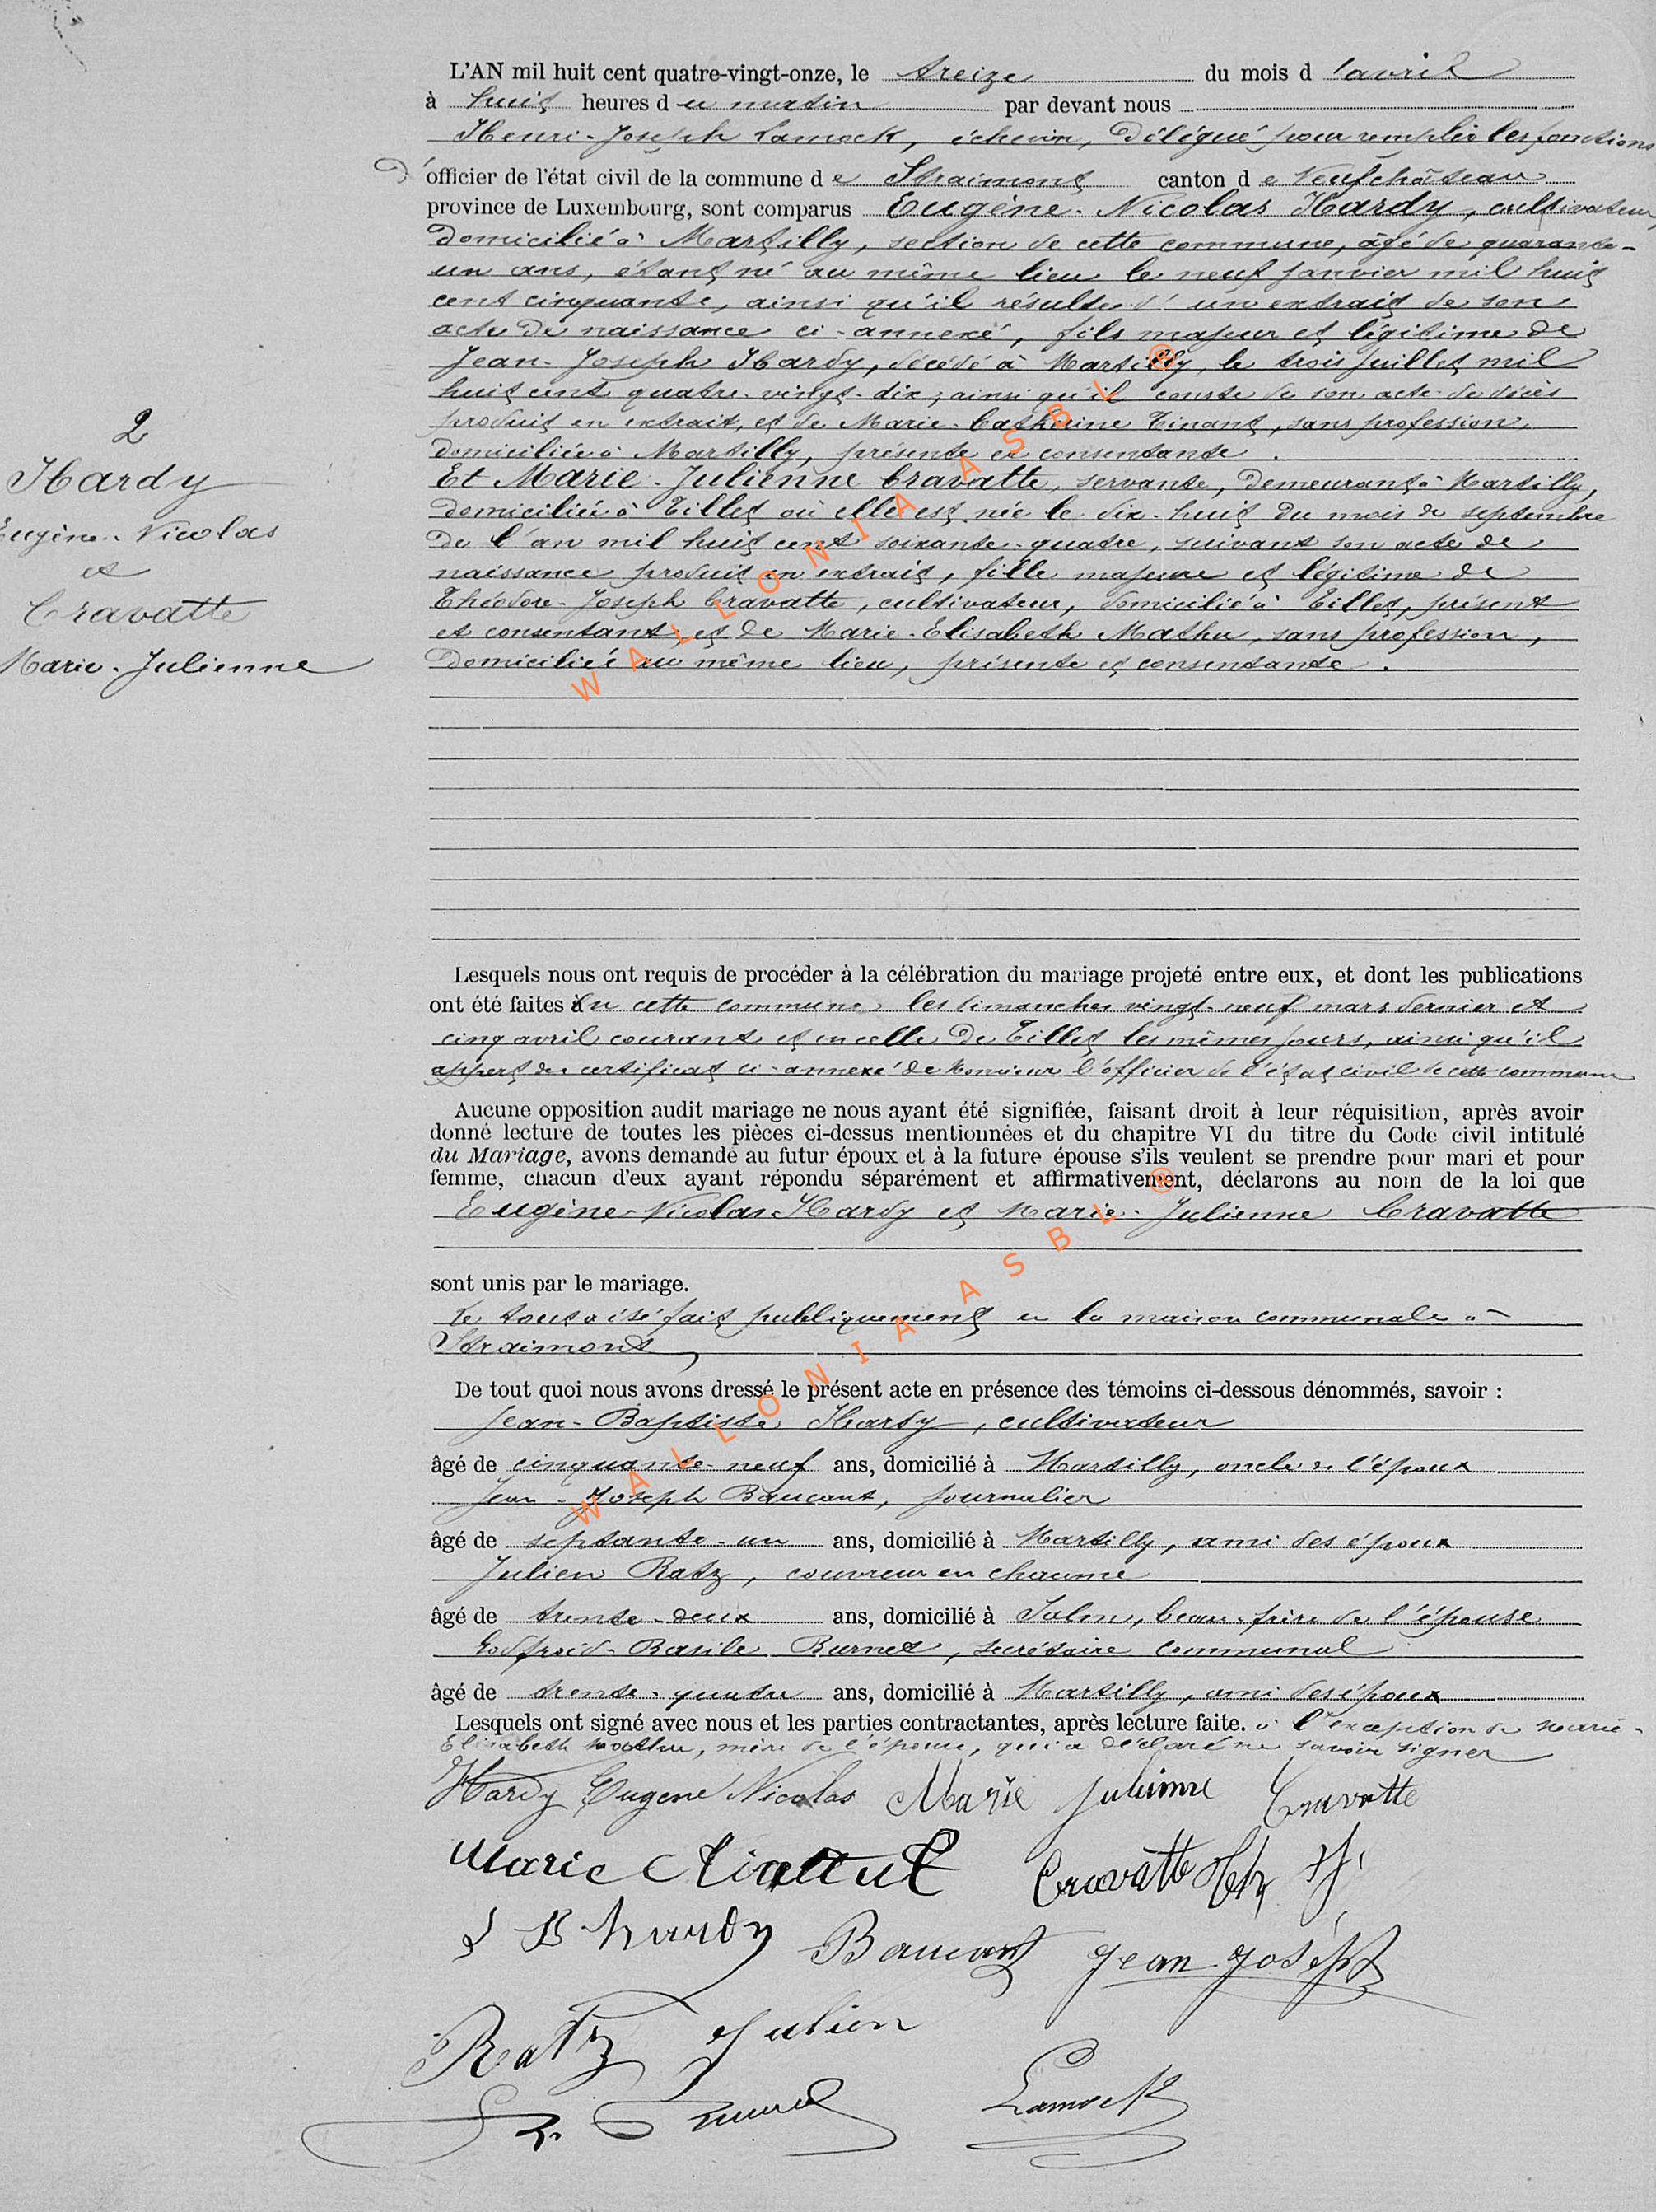 L'AN mil huit cent quatre-vingt-onze, le treize du mois d'avril
à huit heures du matin par devant nous
Henri-Joseph Lamock, échevin, Délégué pour remplir les fonctions
D'officier de l'état civil de la commune de Straimont canton de Neufchâteau
province de Luxembourg, sont comparus Eugène-Nicolas Hardy, cultivateur,
domicilié à Martilly, section de cette commune, âgé de quarante-
un ans, étant né au même lieu le neuf janvier mil huit
cent cinquante, ainsi qu'il résulte d'un extrait de son
acte de naissance ci-annexé, fils majeur et légitime de
Jean-Joseph Hardy, décédé à Martilly, le trois juillet mil
huit cent quatre-vingt-dix; ainsi qu'il conste de son acte de décès
produit en extrait, et de Marie-Catherine Tinant, sans profession,
domiciliée à Martilly, présente et consentante.
2
Hardy
Eugène-Nicolas
et
Cravatte
Marie-Julienne
Et Marie-Julienne Cravatte, servante, demeurant à Martilly,
domiciliée à Tillet où elle est née le dix-huit du mois de septembre
de l'an mil huit cent soixante-quatre, suivant son acte de
naissance produit en extrait, fille majeure et légitime de
Théodore-Joseph Cravatte, cultivateur, domicilié à Tillet, présent
et consentant, et de Marie-Elisabeth Mathu, sans profession,
domiciliée au même lieu, présente et consentante.
WALLONIA ASBL ®
Lesquels nous ont requis de procéder à la célébration du mariage projeté entre eux, et dont les publications
ont été faites en cette commune les dimanches vingt-neuf mars dernier et
cinq avril courant et en celle de Tillet les mêmes jours, ainsi qu'il
appert du certificat ci-annexé de Monsieur l'officier de l'état civil de cette commune
Aucune opposition audit mariage ne nous ayant été signifiée, faisant droit à leur réquisition, après avoir
donné lecture de toutes les pièces ci-dessus mentionnées et du chapitre VI du titre du Code civil intitulé
du Mariage, avons demandé au futur époux et à la future épouse s'ils veulent se prendre pour mari et pour
femme, chacun d'eux ayant répondu séparément et affirmativement, déclarons au nom de la loi que
Eugène-Nicolas Hardy et Marie-Julienne Cravatte
sont unis par le mariage.
Le tout a été fait publiquement en la maison communale à
Straimont,
De tout quoi nous avons dressé le présent acte en présence des témoins ci-dessous dénommés, savoir :
Jean-Baptiste Hardy, cultivateur
âgé de cinquante-neuf ans, domicilié à Martilly, oncle de l'époux
Jean-Joseph Baucant, journalier
âgé de septante-un ans, domicilié à Martilly, ami des époux
Julien Ratz, couvreur en chaume
âgé de trente-deux ans, domicilié à , beau-frère de l'épouse
Godfroid-Basile Burnet, secrétaire communal
âgé de trente-quatre ans, domicilié à Martilly, ami des époux
Lesquels ont signé avec nous et les parties contractantes, après lecture faite. à l'exception de Marie-
Elisabeth Mathu, mère de l'épouse, qui a déclaré ne savoir signer
Hardy Eugene Nicolas Marie Julienne Cravatte
Marie Cravatte
J B hardy Baucant Jean-Joseph
Ratz Julien
Lamock
WALLONIA ASBL ®